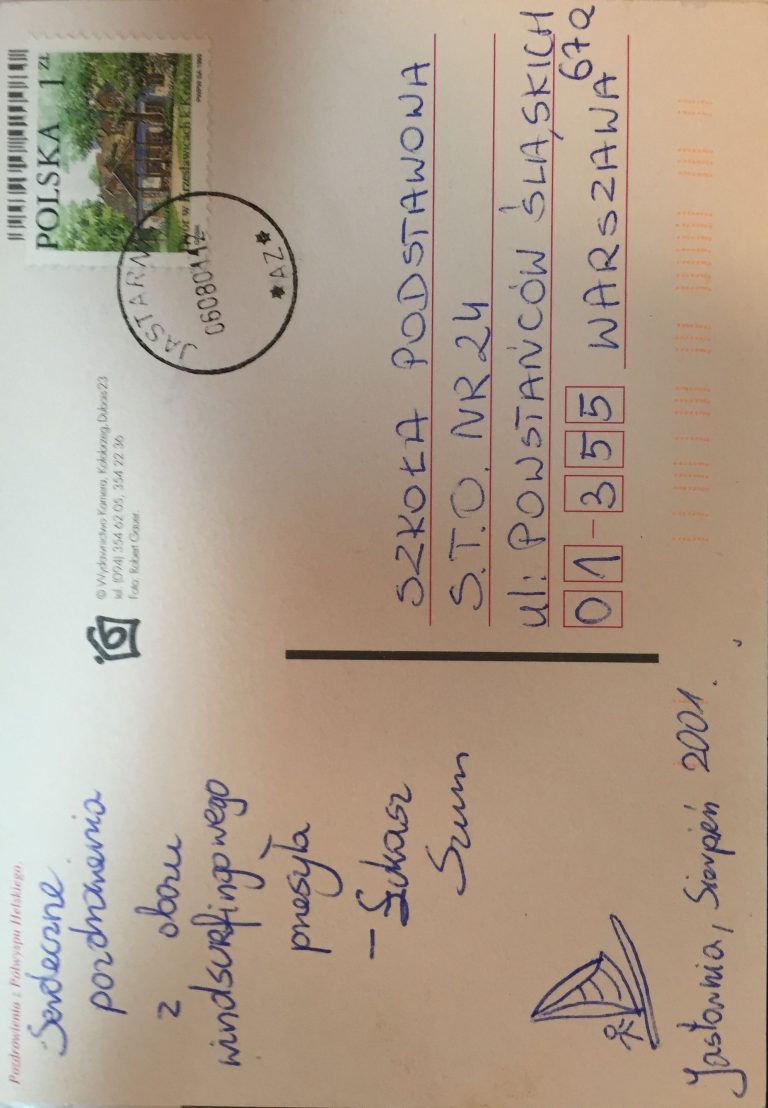 Pozdrowienia z Półwyspu Helskiego.
Serdeczne
pozdrowienia
z obozu
windsurfingowego
przesyła
– Łukasz
Szum
Jastarnia, Sierpień 2001.
© Wydawnictwo Kamera, Kołobrzeg, Dubois 23
tel. (094) 354 62 05, 354 22 36
Foto: Robert Gauer.
POLSKA 1 ZŁ
PWPW SA 1999
JASTARN
06080112
*AZ*
SZKOŁA PODSTAWOWA
S.T.O. NR 24
ul: POWSTAŃCÓW ŚLĄSKICH
67a
01-355 WARSZAWA